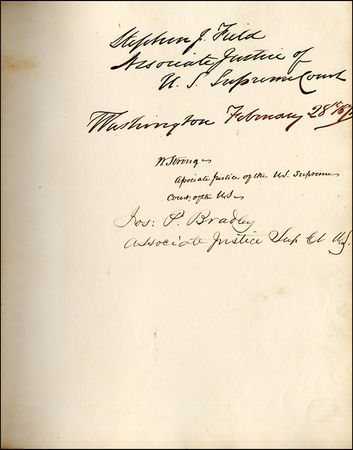 Stephen J. Field
Associate Justice of
U. S. Supreme Court
Washington February 28th
W Strong
Associate Justice of the U.S. Supreme
Court of the U.S.
Jos: P. Bradley
Associate Justice Sup Ct U.S.